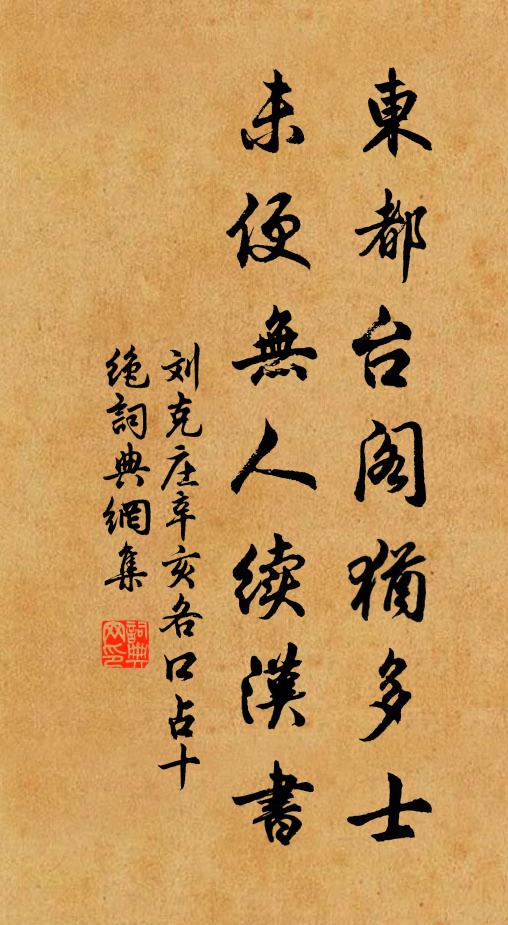 東都台阁猶多士
未便無人续漢書
刘克庄辛亥各口占十
绝詞典網集
詞典
网印